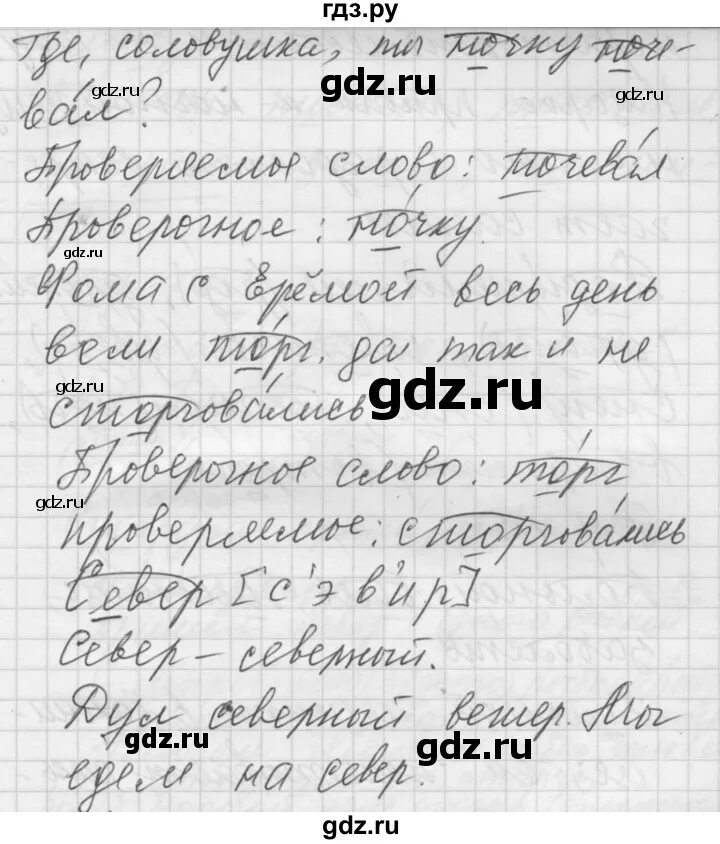 гдз.ру
Где, соловушка, ты ночку ноче-
gdz.ru gdz.ru gdz.ru
вал?
Проверяемое слово: ночевал
Проверочное: ночку.
gdz.ru
Фома с Ерёмой весь день
вели торг, да так и не
gdz.ru gdz.ru
сторговались
Проверочное слово: торг
gdz.ru
проверяемое: сторговались
Север [с'эв'ир]
Север – северный.
Дул северный ветер. Мы
gdz.ru gdz.ru
едем на север.
gdz.ru